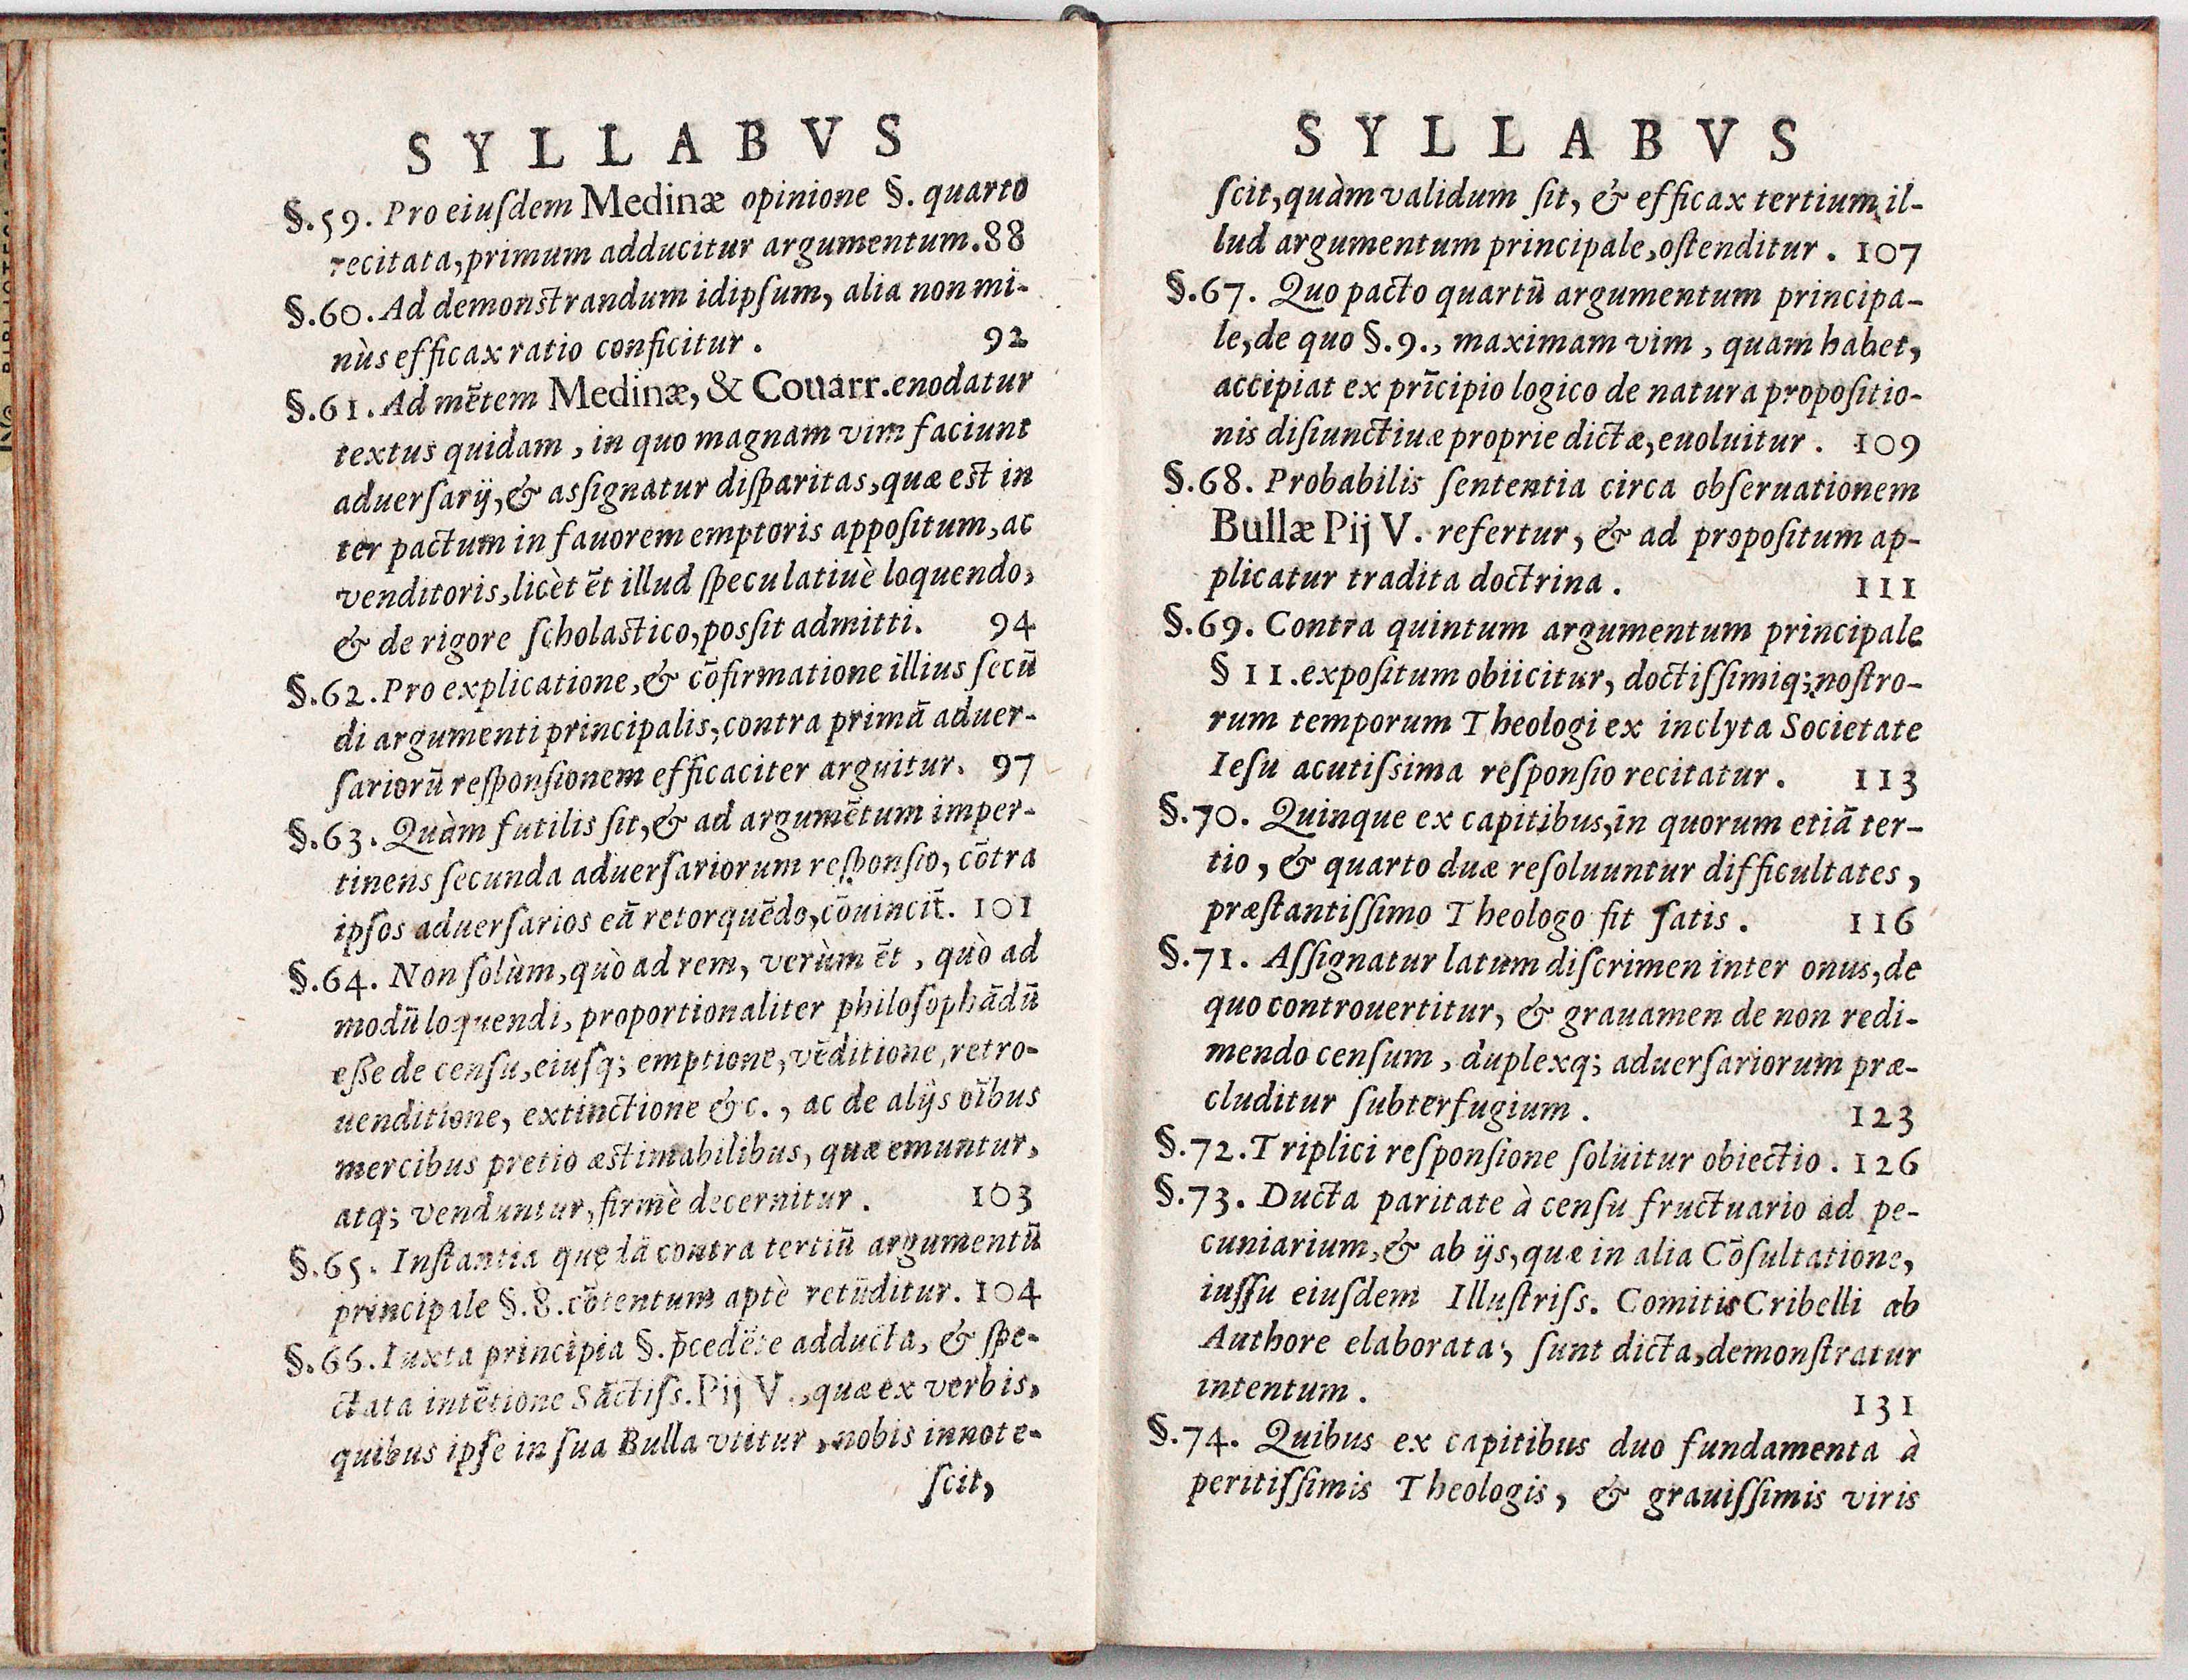 SYLLABVS
§.59. Pro eiuſdem Medinæ opinione §. quarto
recitata, primum adducitur argumentum. 88
§.60. Ad demonſtrandum idipſum, alia non mi-
nùs efficax ratio conficitur. 92
§.61. Ad mẽtem Medinæ, & Couarr. enodatur
textus quidam, in quo magnam vim faciunt
aduerſarij, & aſſignatur diſparitas, quæ eſt in
ter pactum in fauorem emptoris appoſitum, ac
venditoris, licèt ẽt illud ſpeculatiuè loquendo,
& de rigore ſcholaſtico, poſſit admitti. 94
§.62. Pro explicatione, & cõfirmatione illius ſecũ
di argumenti principalis, contra primã aduer-
ſariorũ reſponſionem efficaciter arguitur. 97
§.63. Quàm futilis ſit, & ad argumẽtum imper-
tinens ſecunda aduerſariorum reſponſio, cõtra
ipſos aduerſarios eã retorquẽdo, cõuincit̃. 101
§.64. Non ſolùm, quò ad rem, verùm ẽt, quò ad
modũ loquendi, proportionaliter philoſophãdũ
eſſe de cenſu, eiuſq; emptione, vẽditione, retro-
uenditione, extinctione &c., ac de alijs oĩbus
mercibus pretio æſtimabilibus, quæ emuntur,
atq; venduntur, firmè decernitur. 103
§.65. Inſtantia quędã contra tertiũ argumentũ
principale §.8. cõtentum aptè retũditur. 104
§.66. Iuxta principia §. p̃cedẽte adducta, & ſpe-
ctata intẽtione Sãctiſs. Pij V., quæ ex verbis,
quibus ipſe in ſua Bulla vtitur, nobis innote-
ſcit,
SYLLABVS
ſcit, quàm validum ſit, & efficax tertium il-
lud argumentum principale, oſtenditur. 107
§.67. Quo pacto quartũ argumentum principa-
le, de quo §.9., maximam vim, quam habet,
accipiat ex prĩcipio logico de natura propoſitio-
nis diſiunctiuæ proprie dictæ, euoluitur. 109
§.68. Probabilis ſententia circa obſeruationem
Bullæ Pij V. refertur, & ad propoſitum ap-
plicatur tradita doctrina. 111
§.69. Contra quintum argumentum principale
§ 11. expoſitum obiicitur, doctiſſimiq; noſtro-
rum temporum Theologi ex inclyta Societate
Ieſu acutiſsima reſponſio recitatur. 113
§.70. Quinque ex capitibus, in quorum etiã ter-
tio, & quarto duæ reſoluuntur difficultates,
præſtantiſſimo Theologo fit ſatis. 116
§.71. Aſſignatur latum diſcrimen inter onus, de
quo controuertitur, & grauamen de non redi-
mendo cenſum, duplexq; aduerſariorum præ-
cluditur ſubterfugium. 123
§.72. Triplici reſponſione ſoluitur obiectio. 126
§.73. Ducta paritate à cenſu fructuario ad pe-
cuniarium, & ab ijs, quæ in alia Cõſultatione,
iuſſu eiuſdem Illuſtriſs. Comitis Cribelli ab
Authore elaborata, ſunt dicta, demonſtratur
intentum. 131
§.74. Quibus ex capitibus duo fundamenta à
peritiſſimis Theologis, & grauiſſimis viris